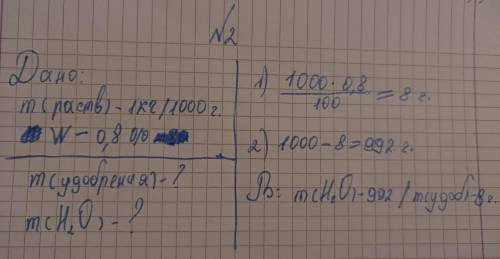 №2
Дано:
m(раств)-1кг/1000г.
W-0,8 %
m(удобрения)-?
m(H₂O)-?
1) 1000·0,8
100
=8г.
2) 1000-8=992 г.
В: m(H₂O)-992/m(удоб)-8г.